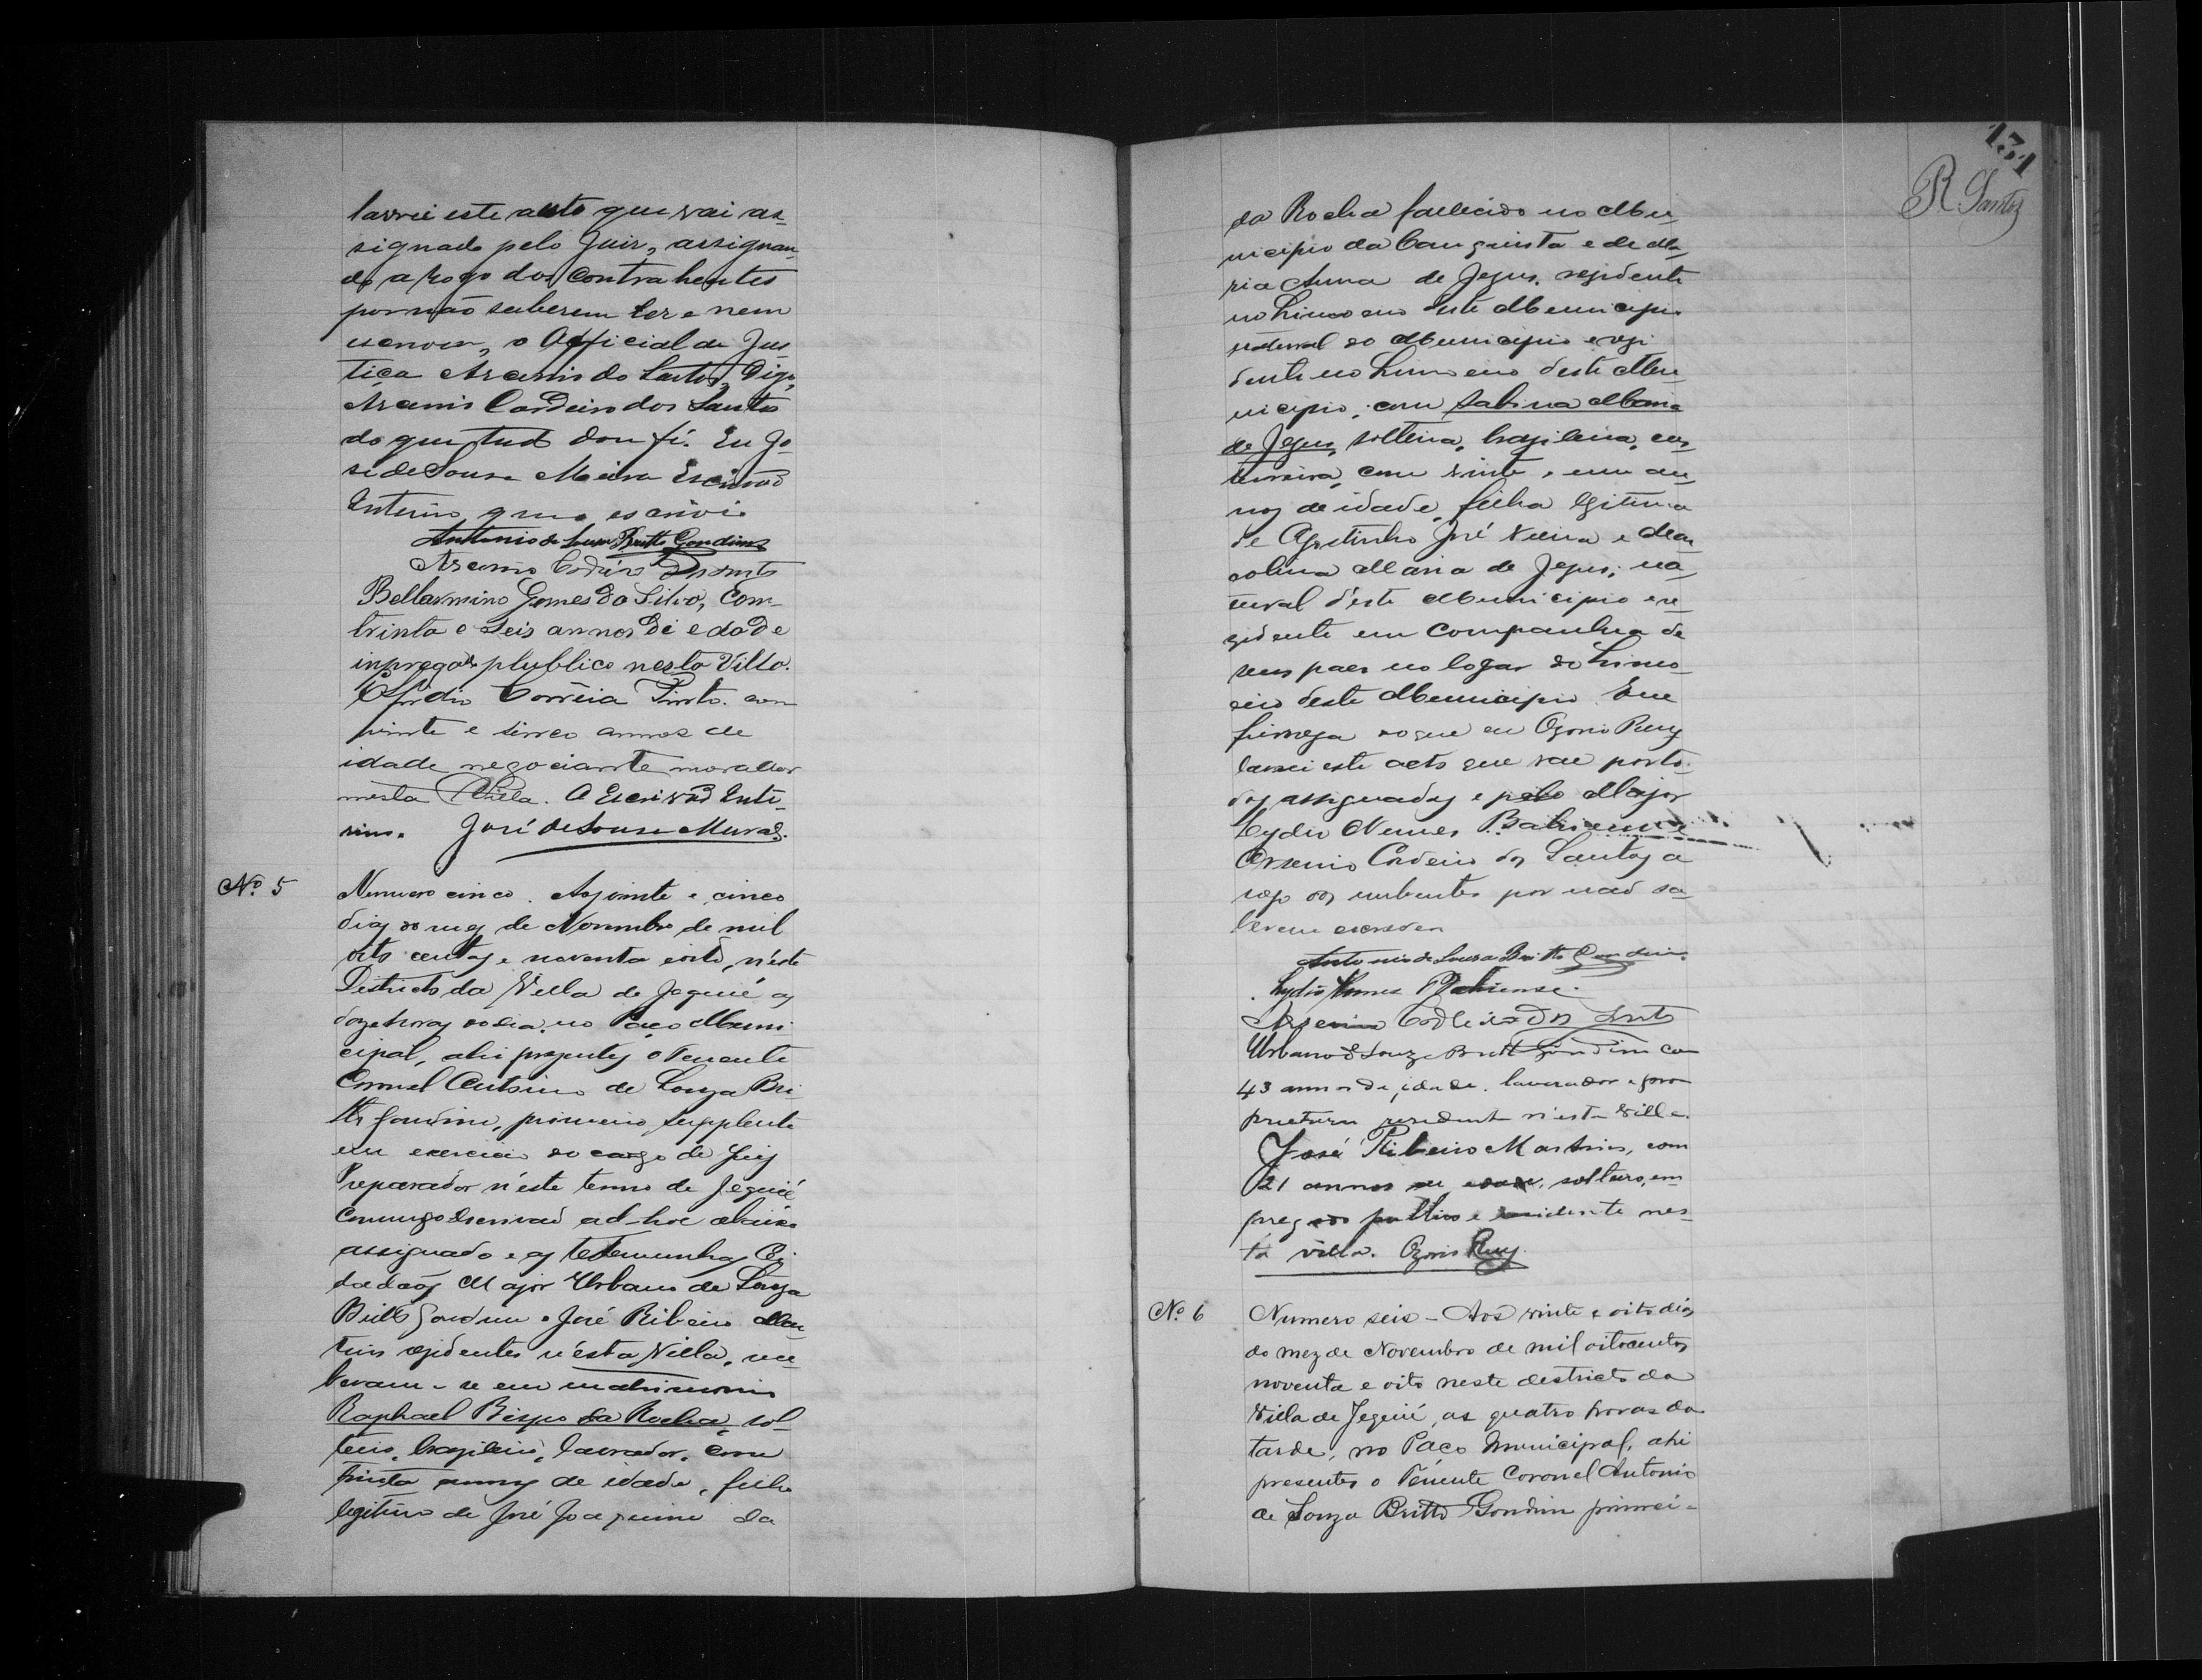 lavrei este auto que vai as-
signado pelo Juis, assignan-
do a rogo dos contrahentes
por não saberem ler e nem
escrever, o Official de Jus-
tiça Arcenio do Santos, Digo,
Arcenio Cordeiro dos Santos
do que tudo dou fé. Eu Jo-
se de Sousa Meira Escrivão
Enterino que o escrivi.
Antonio de Souza Britto Gondim
Arcenio Codeiro Dos santos
Bellarmino Gomes da Silva, com
trinta e seis annos de edade
inpregado plublico nesta Villa.
Correia Pinto. com
vinte e sinco annos de
idade negociante morador
nesta Villa. O Escrivão Ente-
rino. José de Sousa Meira.
Nº 5
Numero cinco. Aos vinte e cinco
dias do mez de Novembro de mil
oito centos e noventa e oito, n'éste
Districto da Villa de Jequié as
doze horas do dia, no Paço Muni
cipal, ahi prezentes o Tenente
Coronel Antonio de Souza Bri
tto Gondim, primeiro supplente
em exercicio do cargo de Juiz
Preparador n'éste termo de Jequié
Commigo Escrivão ad-hoc abaixo
assignado e as testemunhas Ci-
dadãos Major Urbano de Souza
Britto Gondim e José Ribeiro Mar
tins rezidentes n'ésta Villa, rece
beram-se em matrimonio
Raphael Bispo da Rocha, sol-
teiro, brazileiro, lavrador, com
trinta annos de idade, filho
legitimo de José Joaquim da
131
R. Santos
da Rocha fallecido no Mu-
nicipio da Conquista e de Ma-
ria Anna de Jezus, rezidente
no Limoeiro d'este Municipio
natural do Municipio e rezi
dente no Limoeiro deste Mu-
nicipio; com Sabina Maria
de Jezus, solteira, brazileira, cos-
tureira, com vinte e um an-
nos de idade, filha legitima
de Agostinho José Vieira e Mar
colina Maria de Jezus; na-
tural d'éste Municipio e re-
zidente em companhia de
seus paes no logar do Limo-
eiro deste Municipio. Em
firmeza do que eu Ozorio Ruy
lavrei este acto que vae por to-
dos assignados e pelo Major
Lydio Nunes Bahiense e
Arsenio Cordeiro dos Santos a
rogo dos nubentes por não sa-
berem escrever
Antonio de Souza Britto Gondim.
Lydio Nunes Bahiense.
Arsenio Codeiro Dos Santos
Urbano de Souza Britto Gondim com
43 annos de idade, lavrador e pro
prietario residente n'esta Villa.
José Ribeiro Martins, com
21 annos de edade, solteiro, em-
pregado publico e residente nes-
ta villa. Ozorio Ruy.
Nº 6
Numero seis - Aos vinte e oito dias
do mez de Novembro de mil oitocentos
noventa e oito neste destricto da
Villa de Jequié, as quatro horas da
tarde, no Paço Municipal, ahi
presentes o Tenente Coronel Antonio
de Souza Britto Gondim primei-